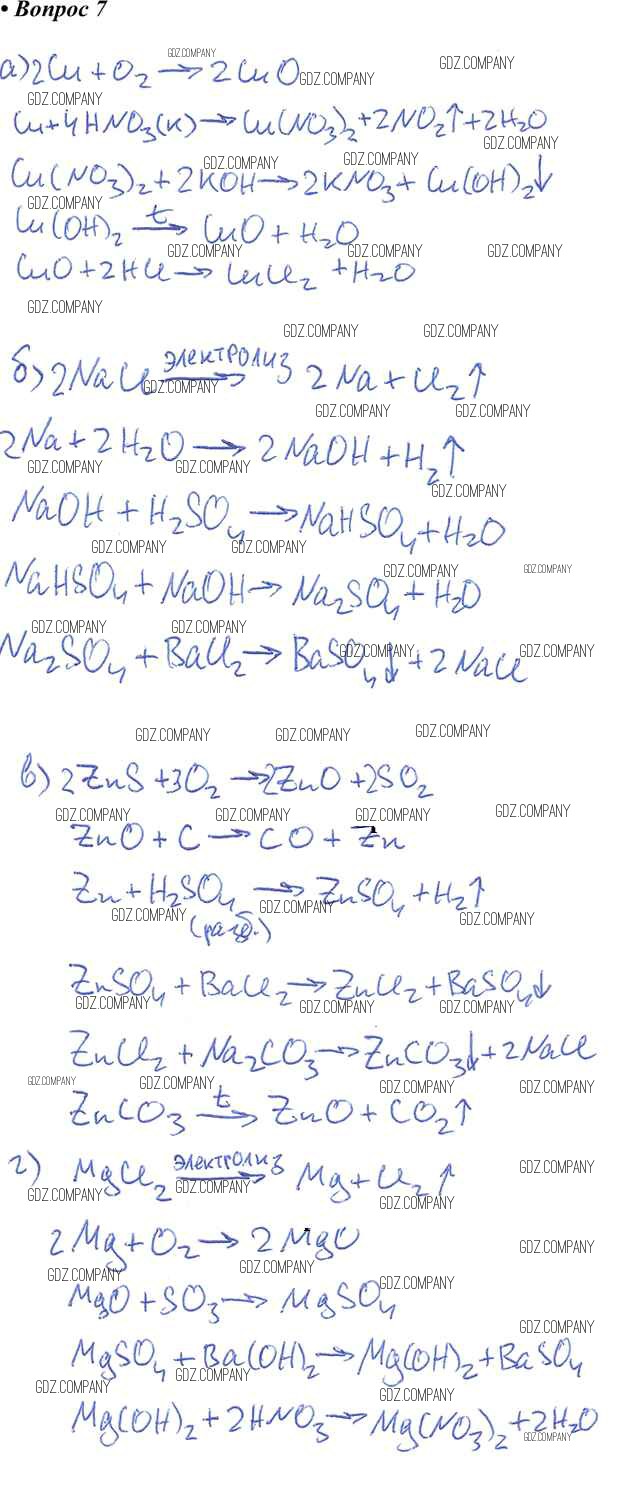 • Вопрос 7
а) 2Cu + O₂ → 2CuO
Cu + 4HNO₃(к) → Cu(NO₃)₂ + 2NO₂↑ + 2H₂O
Cu(NO₃)₂ + 2KOH → 2KNO₃ + Cu(OH)₂↓
Cu(OH)₂ →(t) CuO + H₂O
CuO + 2HCl → CuCl₂ + H₂O
б) 2NaCl →(электролиз) 2Na + Cl₂↑
2Na + 2H₂O → 2NaOH + H₂↑
NaOH + H₂SO₄ → NaHSO₄ + H₂O
NaHSO₄ + NaOH → Na₂SO₄ + H₂O
Na₂SO₄ + BaCl₂ → BaSO₄↓ + 2NaCl
в) 2ZnS + 3O₂ → 2ZnO + 2SO₂
ZnO + C → CO + Zn
Zn + H₂SO₄ → ZnSO₄ + H₂↑
(разб.)
ZnSO₄ + BaCl₂ → ZnCl₂ + BaSO₄↓
ZnCl₂ + Na₂CO₃ → ZnCO₃↓ + 2NaCl
ZnCO₃ →(t) ZnO + CO₂↑
г) MgCl₂ →(электролиз) Mg + Cl₂↑
2Mg + O₂ → 2MgO
MgO + SO₃ → MgSO₄
MgSO₄ + Ba(OH)₂ → Mg(OH)₂ + BaSO₄
Mg(OH)₂ + 2HNO₃ → Mg(NO₃)₂ + 2H₂O
GDZ.COMPANY